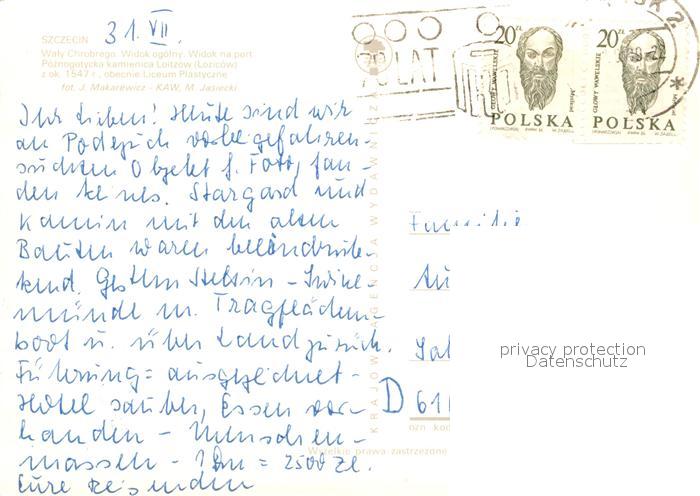 31. VII.
SZCZECIN
Wały Chrobrego. Widok ogólny. Widok na port
Późnogotycka kamienica Loitzów (Łoziców)
z ok. 1547 r., obecnie Liceum Plastyczne
fot. J. Makarewicz - KAW, M. Jasiecki
Ihr Lieben! Heute sind wir
an Podejuch vorbeigefahren -
suchten Objekt f. Foto, fan-
den keines. Stargard und
Kamin mit den alten
Bauten waren beeindruk-
kend. Gestern Stettin - Swine-
münde m. Tragflächen-
boot u. über Land zurück.
Führung = ausgezeichnet -
Hotel sauber, Essen vor-
handen - Menschen-
massen - 1 Dm = 2500 Zl.
Eure Reisenden
KRAJOWA AGENCJA WYDAWNICZA
Wszelkie prawa zastrzeżone
LAT
20 ZŁ
GŁOWY WAWELSKIE
POLSKA
20 ZŁ
GŁOWY WAWELSKIE
POLSKA
Familie
D 61
ozn kod
privacy protection
Datenschutz